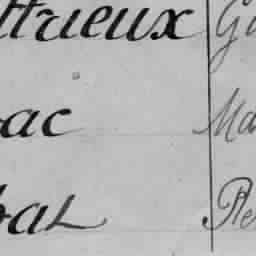 ttrieux Ga
ac Ma
bal Ple